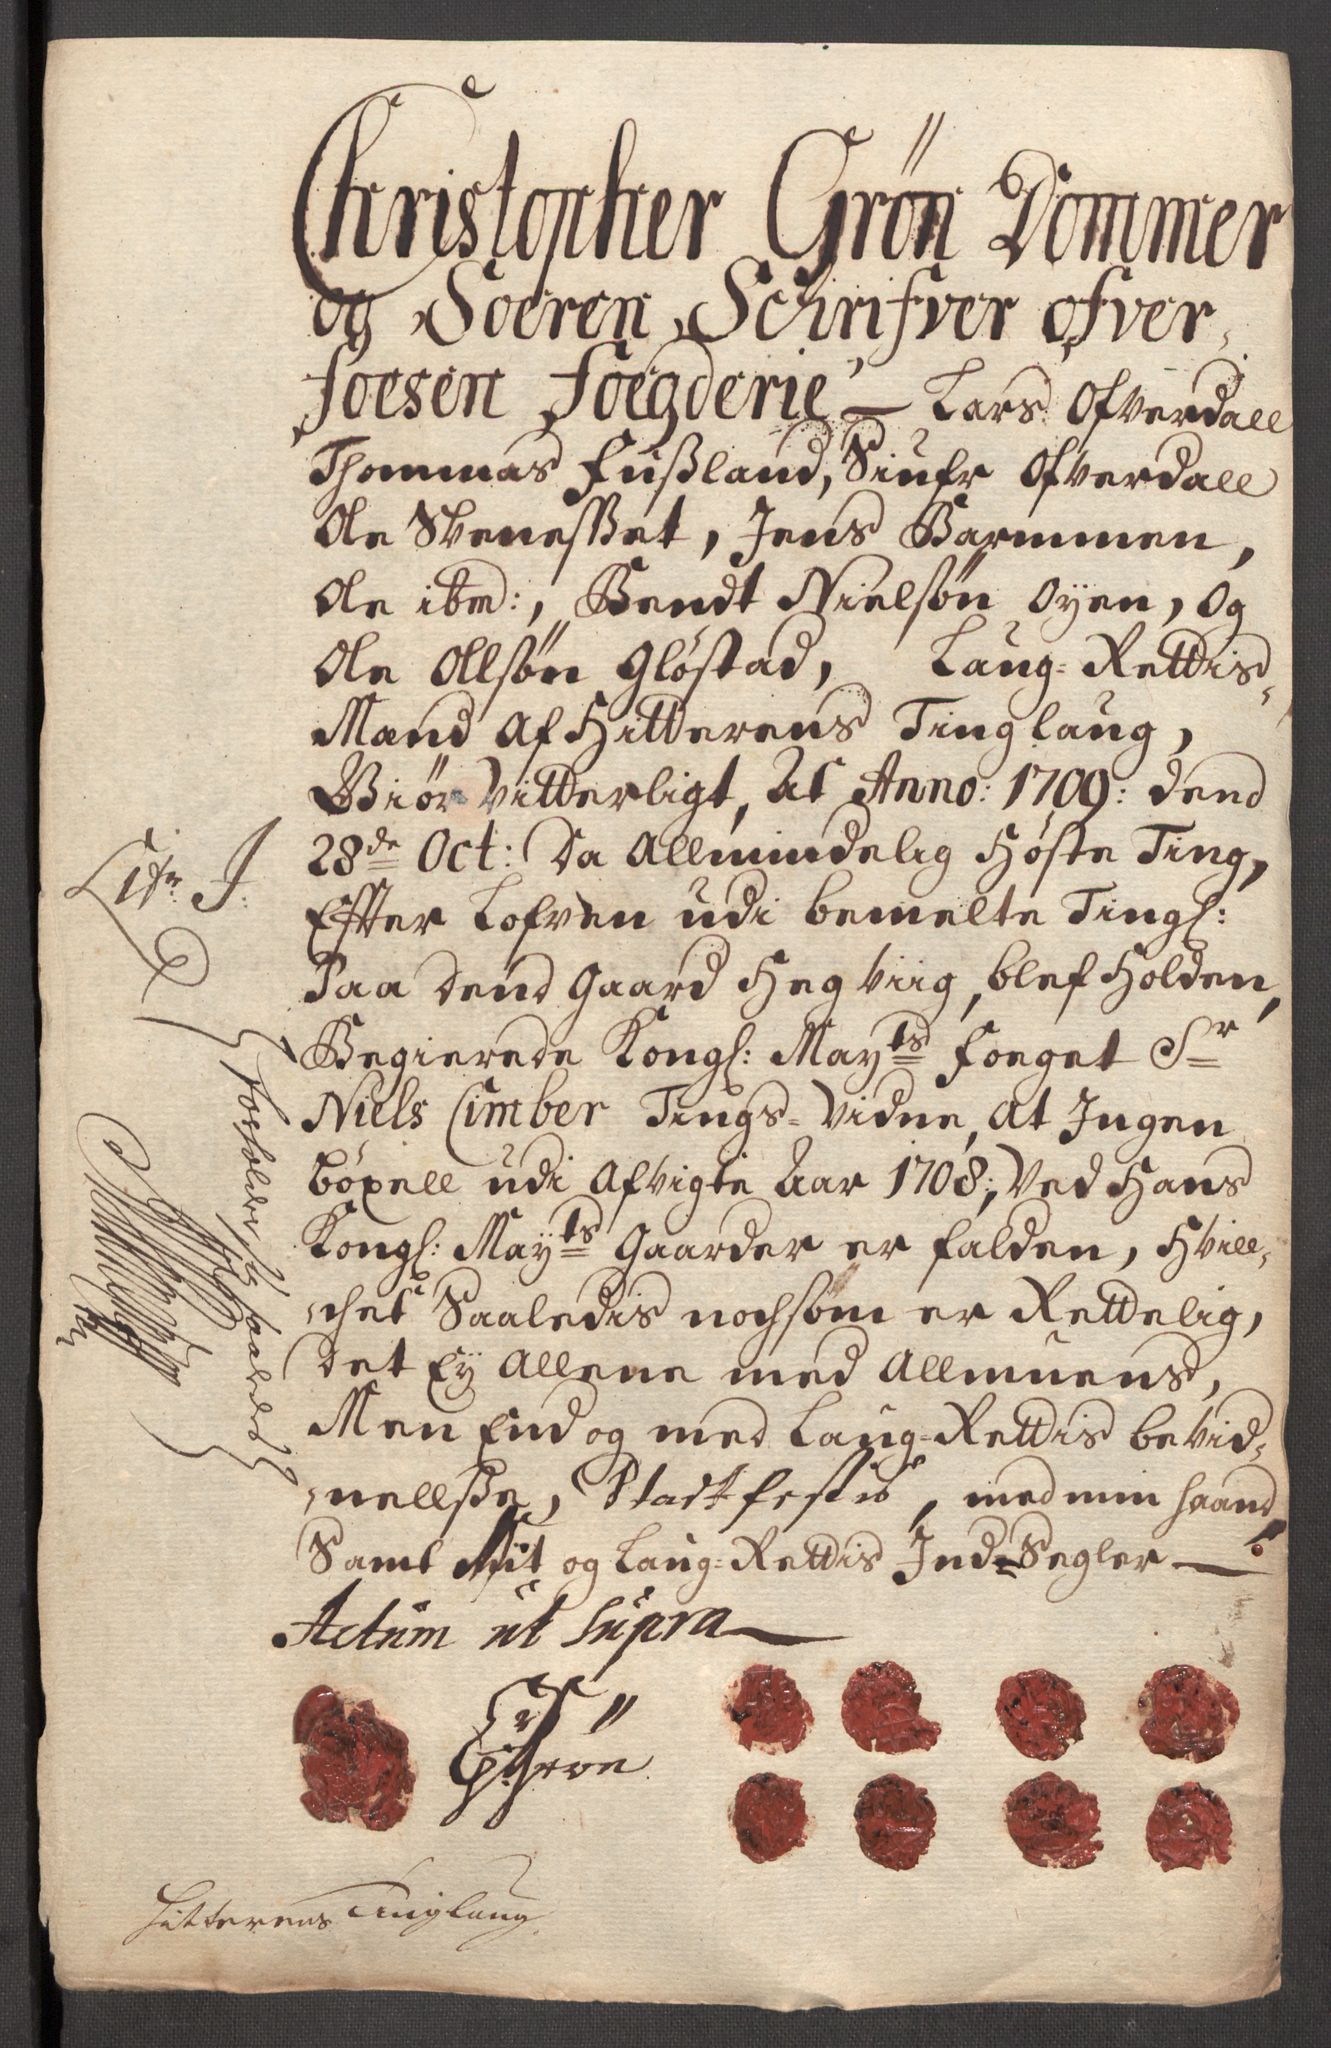 Christopher Grön Dommer
og Soeren Schrifver ofver
foesen foegderie, Lars Ofverdall
Thommas Fußland, Siufr Ofverdall
Ole Svenesßet, Jens Barmmen,
Ole ibm:, Bendt Nielsön Oyen, og
Ole Ollsön Gløstad, Laug-Rettis-
Mænd af Hitterens Tinglaug,
Giör Vitterligt, At Anno: 1709: dend
28de Oct: Da Allmindelig Høste Ting,
Effter Lofven udi bemelte Tingl:
Paa dend Gaard Hegviig, blef Holden,
Begierede Kongl: Mayts foeget Sr
Niels Cimber Tings-Vidne, At Ingen
böxell udi Afvigte Aar 1708; Ved Hans
Kongl: Mayts Gaarder er falden, Hvill-
chet Saaledis nochsom er Rettelig,
det Ey Allene med Allmuens,
Men End og med Laug-Rettis bevid-
nellße, Stadtfestis, med min haand
Samt Mit og Laug-Rettis Ind-Segler
Actum ut Supra
CGrön
Litr. J.
Hitterens Tinglaug